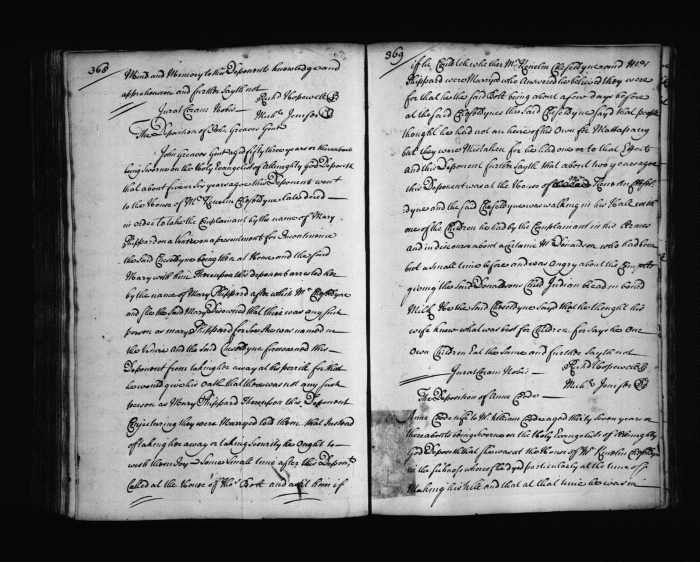 368
Mind and Memory to this Deponents knowledge and
apprehension and further sayth not
Jurat Coram Nobis
Richd Hopewell
Mich Jenifer
The Deposition of John Greaves Gent
John Greaves Gent aged fifty three years or thereabouts
being sworne on the Holy Evangelist of Allmighty God Deposeth
that about five or six years agoe this Deponent went
to the house of Mr Kenelm Cheseldyne late deced
in order to take the Complainant by the name of Mary
Phippard on a Venire on a presentment for Incontinence
the said Cheseldyne being then at home and the said
Mary with him Thereupon this Deponent arrested her
by the name of Mary Phippard after which Mr Cheseldyne
and he the said Mary disowned that there was any such
person as mary Phippard for soe she was named in
the Venire and the said Cheseldyne forewarned this
Deponent from taking her away at his perile for that
he would give his Oath that there was not any such
person as Mary Phippard Thereupon this Deponent
Conjecturing they were Marryed told them that Instead
of taking her away or taking Security he Ought to
wish them Joy & Some Small time after this Deponent
Called at the house of Thos Bolt and askt him if
369
if he Could tell whether Mr Kenelm Cheseldyne and Mrs
Phippard were Marryed who answered he believed they were
for that he the said Bolt being about a few days before
at the said Cheseldynes the said Cheseldyne sayd that people
thought he had not an heire of his Own for Mattapany
but they were Mistaken for he had one or to that Effect
And this Deponent further Sayth that about two years agoe
this Deponent was at the house of Mr Kenelm Chesel
dyne and the said Cheseldyne was walking in his Hall with
one of the Children he had by the Complainant in his Armes
and in discourse about a Certaine Mr Donaldson who had been
but a small time before and was angry about the
giving the said Donaldsons Child Indian bread in boiled
Milk He the said Cheseldyne Sayd that he thought his
wife knew what was best for Children for Says he Our
Own Children Eat the Same and further Sayth not
Jurat Coram Nobis
Richd Hopewell
Mich Jenifer
The Deposition of Anne Coode
Anne Coode wife to Mr William Coode aged thirty Seven years or
thereabouts being Sworne on the Holy Evangelist of Allmighty
God Deposeth that she was at the house of Mr Kenelm Cheseldyne
in the Sickness whereof he dyed particularly at the time of
Making his Will and that at that time he was in